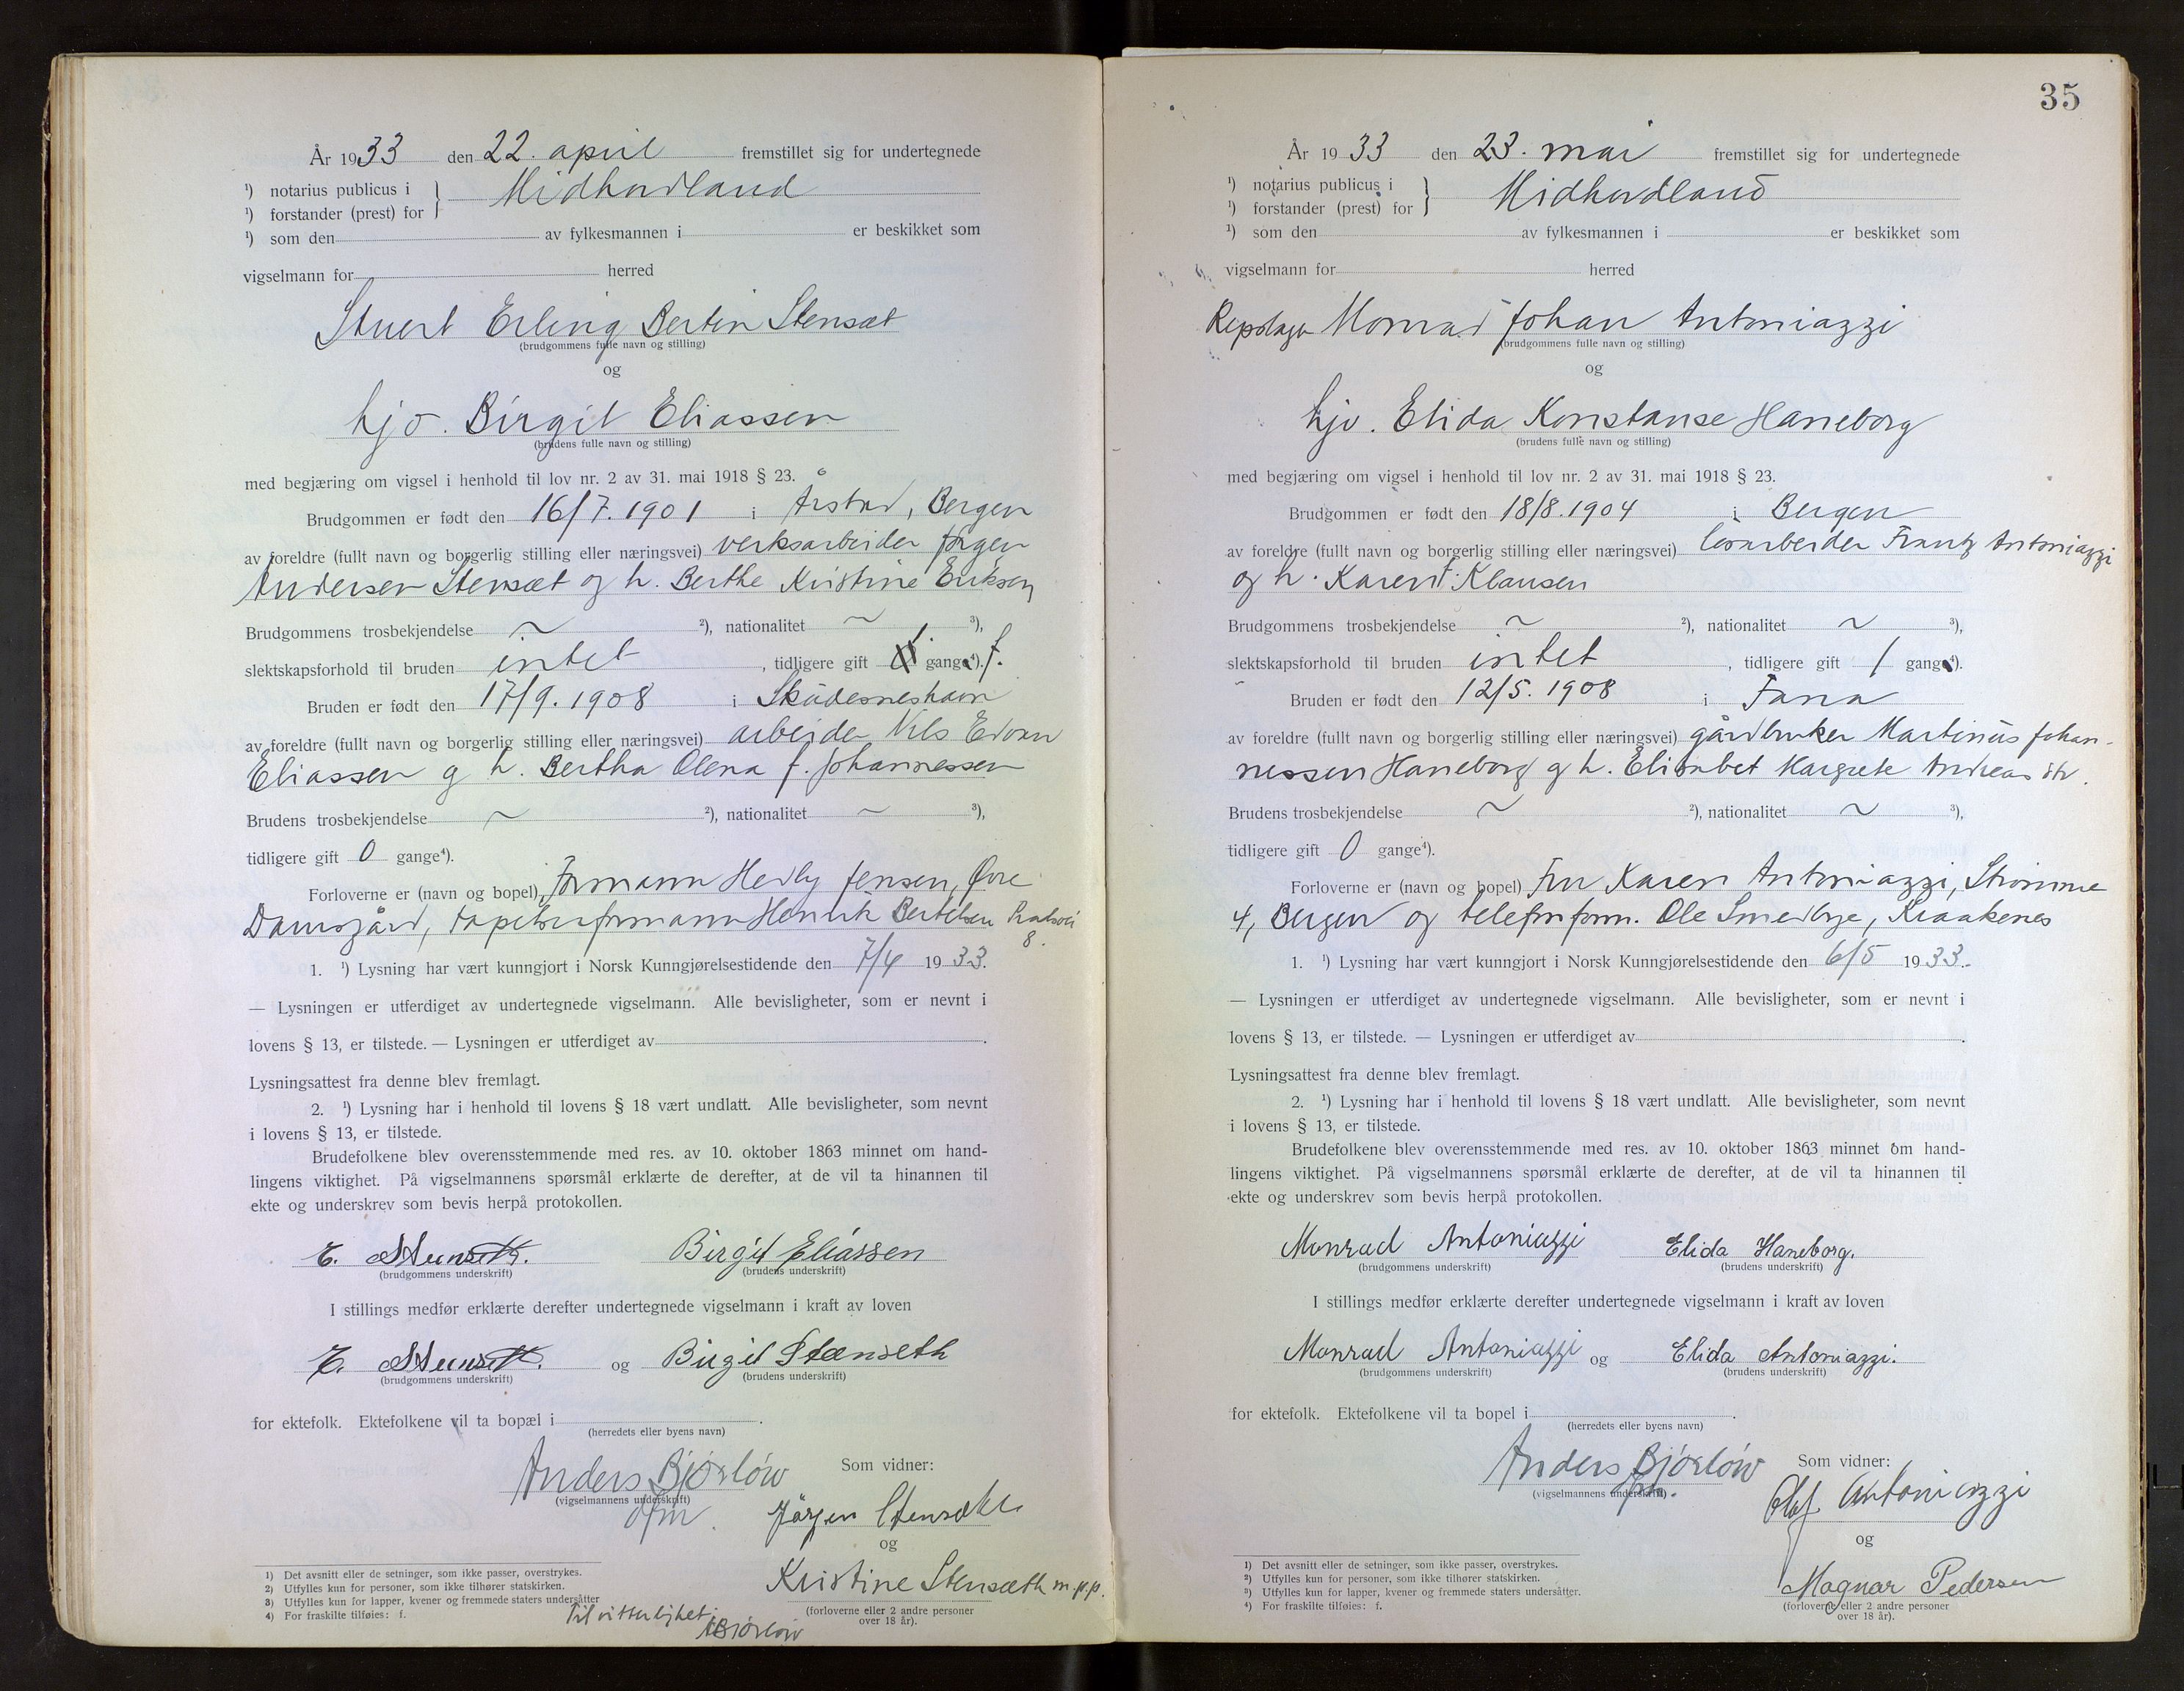 År 1933 den 22. april fremstillet sig for undertegnede
¹) notarius publicus i } Midhordland
¹) forstander (prest) for
¹) som den av fylkesmannen i er beskikket som
vigselmann for herred
Stuert Erling Bertin Stensæt
(brudgommens fulle navn og stilling)
og
hjv. Birgit Eliassen
(brudens fulle navn og stilling)
med begjæring om vigsel i henhold til lov nr. 2 av 31. mai 1918 § 23.
Brudgommen er født den 16/7. 1901 i Årstad, Bergen
av foreldre (fullt navn og borgerlig stilling eller næringsvei) verksarbeider Jørgen
Andersen Stensæt og h. Berthe Kristine Eriksen
Brudgommens trosbekjendelse ~ ²), nationalitet ~ ³),
slektskapsforhold til bruden intet, tidligere gift 1. gang⁴). f.
Bruden er født den 17/9. 1908 i Skudesneshavn
av foreldre (fullt navn og borgerlig stilling eller næringsvei) arbeider Nils Edvan
Eliassen og h. Bertha Olena f. Johannessen
Brudens trosbekjendelse ~ ²), nationalitet ~ ³),
tidligere gift 0 gange⁴).
Forloverne er (navn og bopel) Formann Hedly Jensen, Øvre
Damsgård, tapetserformann Henrik Bertelsen
8.
1. ¹) Lysning har vært kunngjort i Norsk Kunngjørelsestidende den 7/4 1933.
— Lysningen er utferdiget av undertegnede vigselmann. Alle bevisligheter, som er nevnt i
lovens § 13, er tilstede. — Lysningen er utferdiget av .
Lysningsattest fra denne blev fremlagt.
2. ¹) Lysning har i henhold til lovens § 18 vært undlatt. Alle bevisligheter, som nevnt
i lovens § 13, er tilstede.
Brudefolkene blev overensstemmende med res. av 10. oktober 1863 minnet om hand-
lingens viktighet. På vigselmannens spørsmål erklærte de derefter, at de vil ta hinannen til
ekte og underskrev som bevis herpå protokollen.
E. Stenseth. Birgit Eliassen
(brudgommens underskrift) (brudens underskrift)
I stillings medfør erklærte derefter undertegnede vigselmann i kraft av loven
E. Stenseth. og Birgit Stenseth
(brudgommens underskrift) (brudens underskrift)
for ektefolk. Ektefolkene vil ta bopæl i .
(herredets eller byens navn)
Anders Bjørlöw Som vidner:
(vigselmannens underskrift)
dfm. Jörgen Stensæth
og
Kristine Stensæth m.p.p.
(forloverne eller 2 andre personer
over 18 år).
1) Det avsnitt eller de setninger, som ikke passer, overstrykes.
2) Utfylles kun for personer, som ikke tilhører statskirken.
3) Utfylles kun for lapper, kvener og fremmede staters undersåtter
4) For fraskilte tilføies: f.
Til vitterlighet:
ABjörlöw
35
År 1933 den 23. mai fremstillet sig for undertegnede
¹) notarius publicus i } Midhordland
¹) forstander (prest) for
¹) som den av fylkesmannen i er beskikket som
vigselmann for herred
Repslager Monrad Johan Antoniazzi
(brudgommens fulle navn og stilling)
og
hjv. Elida Konstanse Haneborg
(brudens fulle navn og stilling)
med begjæring om vigsel i henhold til lov nr. 2 av 31. mai 1918 § 23.
Brudgommen er født den 18/8. 1904 i Bergen
av foreldre (fullt navn og borgerlig stilling eller næringsvei) løsarbeider Frantz Antoniazzi
og h. Karen f. Klausen
Brudgommens trosbekjendelse ~ ²), nationalitet ~ ³),
slektskapsforhold til bruden intet, tidligere gift 1 gang⁴).
Bruden er født den 12/5. 1908 i Fana
av foreldre (fullt navn og borgerlig stilling eller næringsvei) gårdbruker Martinus Johan-
nessen Haneborg og h. Elisabet Margrete Andreasdtr.
Brudens trosbekjendelse ~ ²), nationalitet ~ ³),
tidligere gift 0 gange⁴).
Forloverne er (navn og bopel) Fru Karen Antoniazzi, Strømme
4, Bergen og telefonform. Ole Smedbye, Kraakenes
1. ¹) Lysning har vært kunngjort i Norsk Kunngjørelsestidende den 6/5 1933.
— Lysningen er utferdiget av undertegnede vigselmann. Alle bevisligheter, som er nevnt i
lovens § 13, er tilstede. — Lysningen er utferdiget av .
Lysningsattest fra denne blev fremlagt.
2. ¹) Lysning har i henhold til lovens § 18 vært undlatt. Alle bevisligheter, som nevnt
i lovens § 13, er tilstede.
Brudefolkene blev overensstemmende med res. av 10. oktober 1863 minnet om hand-
lingens viktighet. På vigselmannens spørsmål erklærte de derefter, at de vil ta hinannen til
ekte og underskrev som bevis herpå protokollen.
Monrad Antoniazzi Elida Haneborg.
(brudgommens underskrift) (brudens underskrift)
I stillings medfør erklærte derefter undertegnede vigselmann i kraft av loven
Monrad Antoniazzi og Elida Antoniazzi.
(brudgommens underskrift) (brudens underskrift)
for ektefolk. Ektefolkene vil ta bopel i .
(herredets eller byens navn)
Anders Bjørlöw Som vidner:
(vigselmannens underskrift)
Olaf Antoniazzi
og
Magnar Pedersen
(forloverne eller 2 andre personer
over 18 år).
¹) Det avsnitt eller de setninger, som ikke passer, overstrykes.
²) Utfylles kun for personer, som ikke tilhører statskirken.
³) Utfylles kun for lapper, kvener og fremmede staters undersåtter.
⁴) For fraskilte tilføies: f.